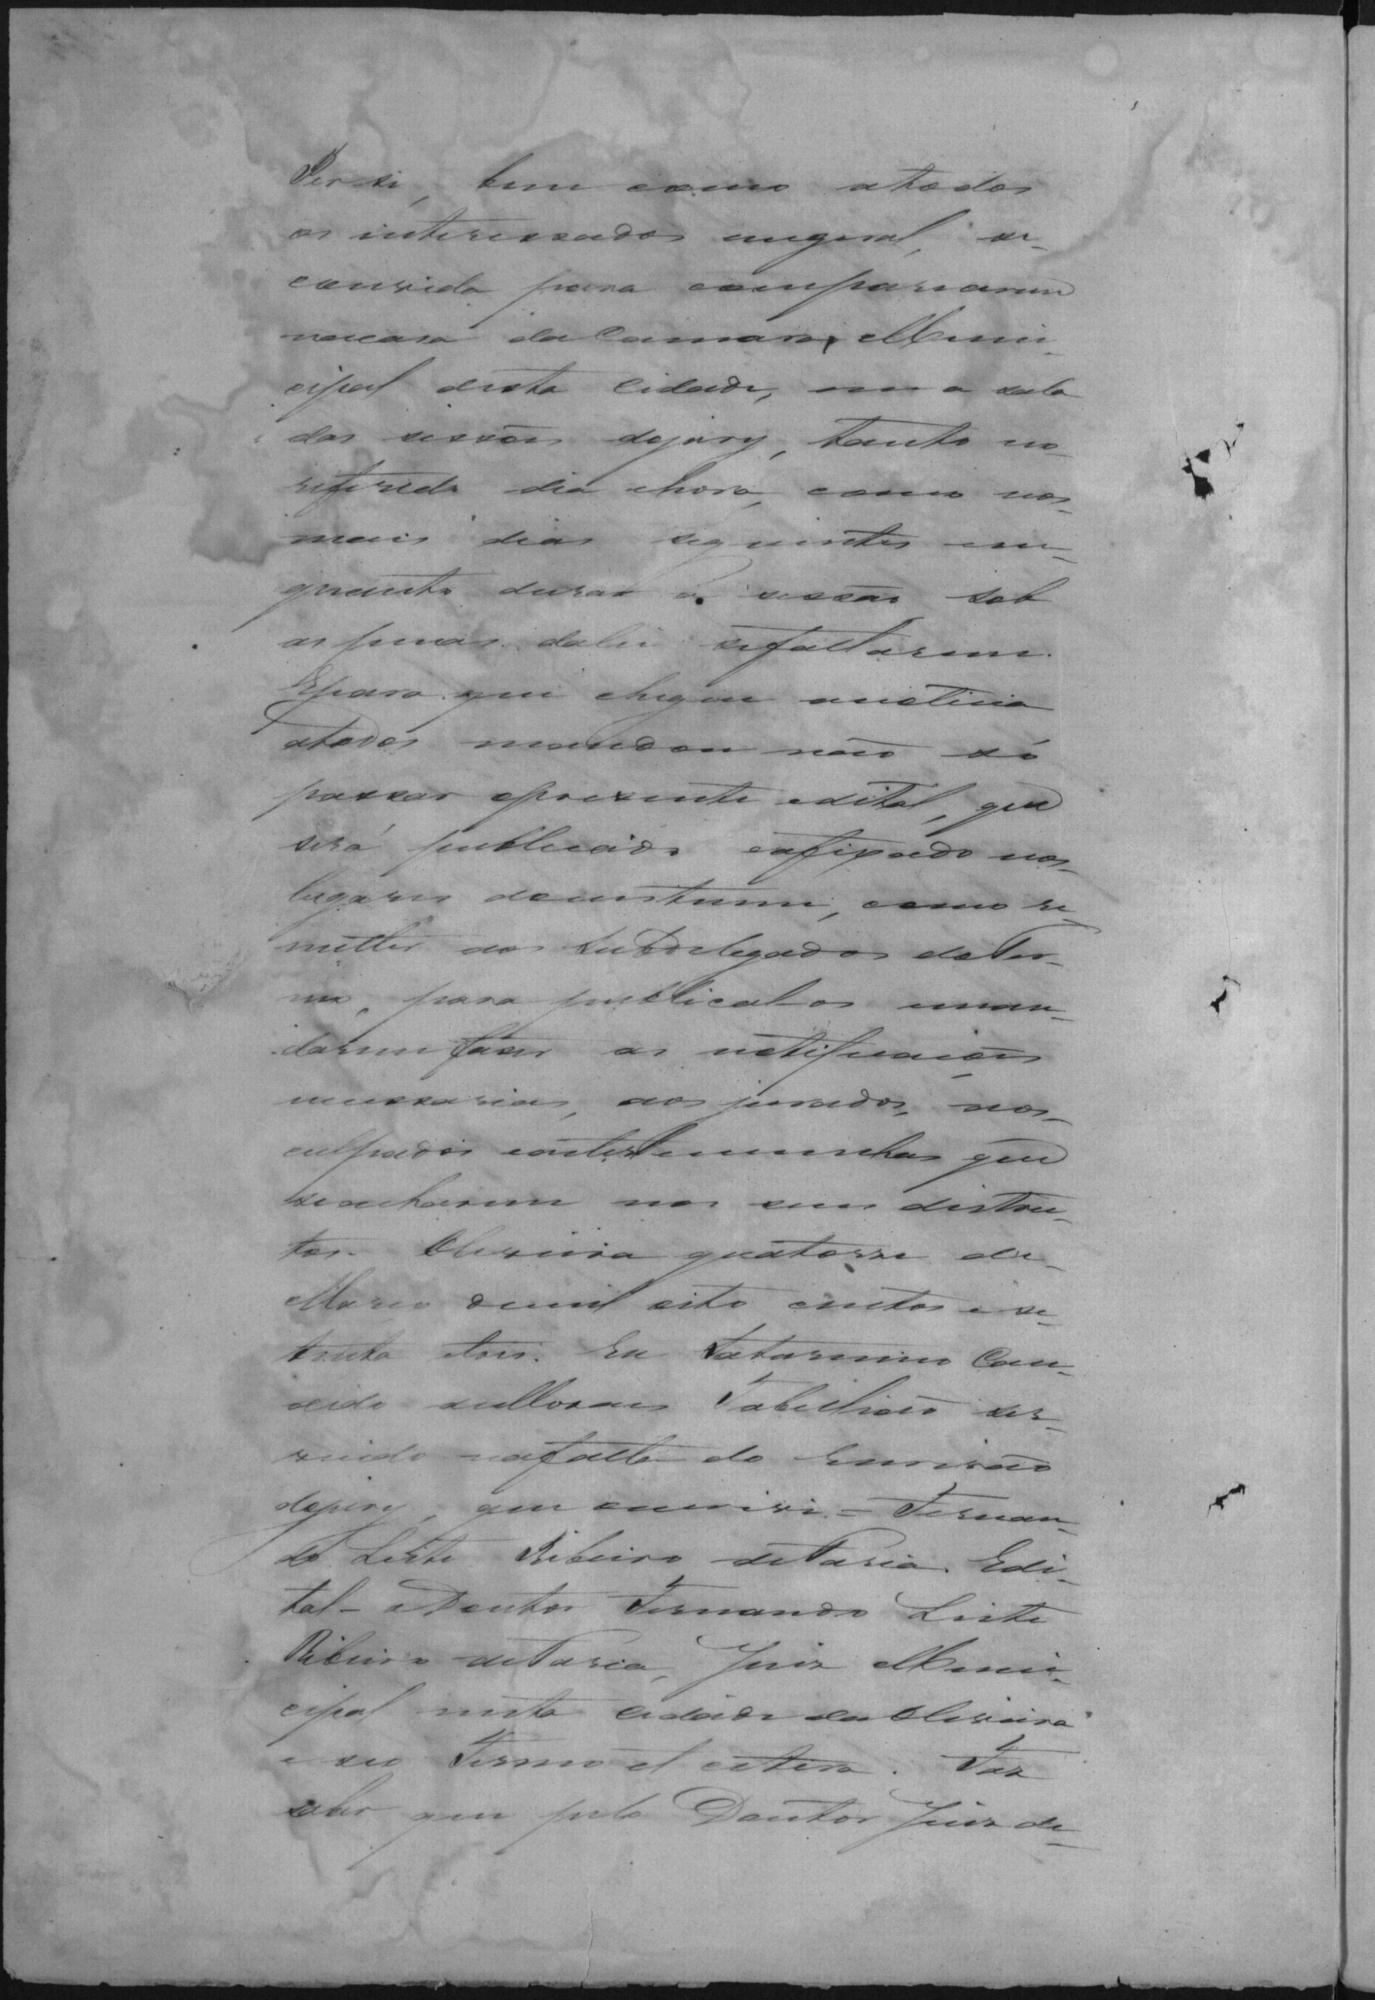 Per si, bem como atodos
os interessados emgeral, se-
convida para compareserem
nacasa da Camara Muni-
cipal desta Cidade, em a sala
das sessões dojury, tanto no
referido dia ehora, como nos-
mais dias seguintes em-
quanto durar a sessão sob
as penas dalei sefaltarem.
Epara que chegue anoticia
atodos mandou não só
passar opresente edital, que
será publicado eafixado nos-
lugares decustume, como re-
metter aos Subdelegados do Ter-
mo, para publical-os eman-
darem faser as notificações
necessarias, aos jurados, aos-
culpados eastestemunhas que
seacharem nos seus distric-
tos. Oliveira quatorze de-
Março demil oito centos e se-
tenta etres. Eu Saturnino Can-
dido deMoraes Tabellião ser-
vindo nafalta do Escrivão
dojury, que escrevi. = Fernan-
do Leite Ribeiro deFaria. Edi-
tal - O Doutor Fernando Leite
Ribeiro deFaria, Juiz Muni-
cipal nesta cidade da Oliveira
e seu Termo et cetera. Faz
saber que pelo Doutor Juiz de-